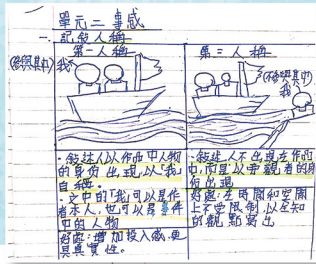 單元二 專感
一、記敍人稱
第一人稱
第三人稱
(參與其中)我
(不參與其中)
我
·敍述人以作品中人物
的身份出現,以「我」
自稱。
·文中的「我」可以是作
者本人,也可以是事件
中的人物
好處:增加投入感,更
具真實性。
·敍述人不出現在作品
中,而是以旁觀者的身
份出現
好處:在時間和空間
上不受限制,以全知
的觀點寫出